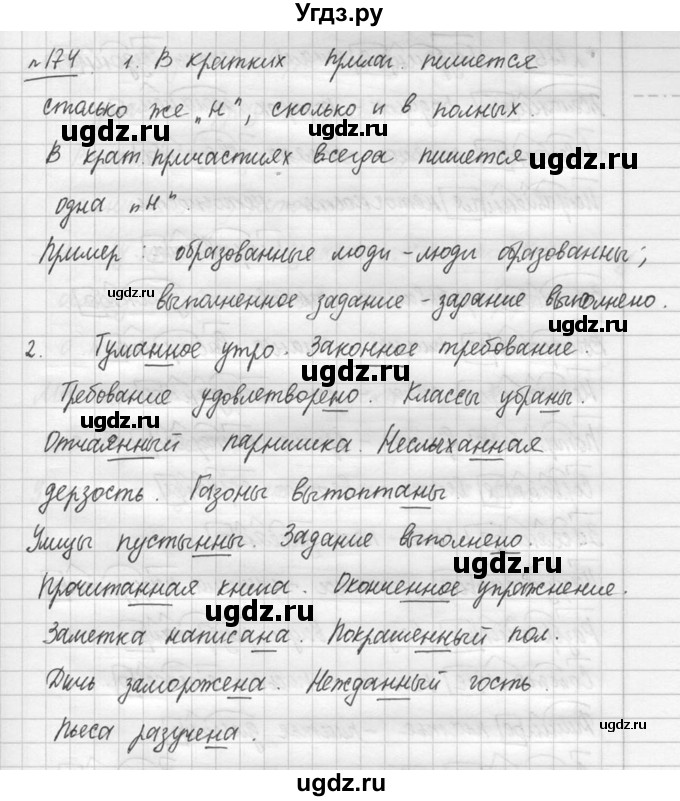 Угдз.ру
№174. 1. В кратких прилаг. пишется
столько же „н", сколько и в полных.
ugdz.ru ugdz.ru
В крат. причастиях всегда пишется
ugdz.ru
одна „н".
Пример: образованные люди – люди образованны;
ugdz.ru выполненное задание – задание выполнено.
ugdz.ru
2. Туманное утро. Законное требование.
ugdz.ru
Требование удовлетворено. Классы убраны.
ugdz.ru
Отчаянный парнишка. Неслыханная
дерзость. Газоны вытоптаны.
Улицы пустынны. Задание выполнено.
ugdz.ru
Прочитанная книга. Оконченное упражнение.
ugdz.ru
Заметка написана. Покрашенный пол.
Дичь заморожена. Нежданный гость.
ugdz.ru
Пьеса разучена.
ugdz.ru